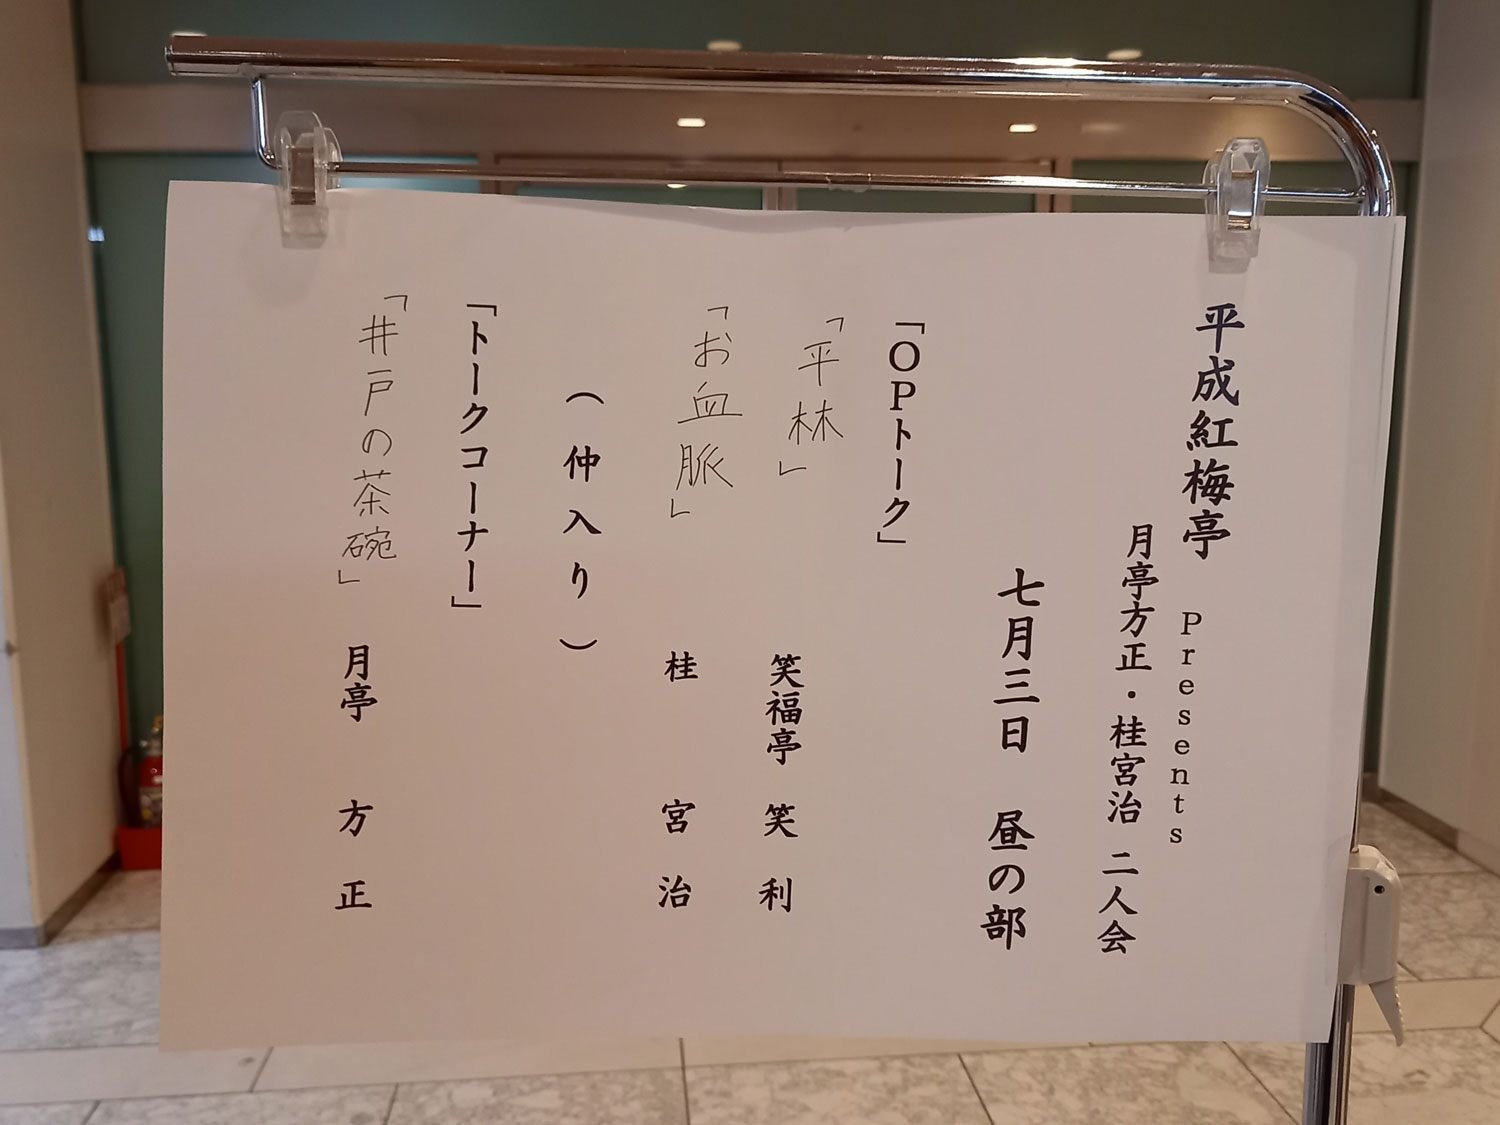 平成紅梅亭 Presents
月亭方正・桂宮治 二人会
七月三日 昼の部
「OPトーク」
「平林」 笑福亭 笑利
「お血脈」 桂 宮治
（仲入り）
「トークコーナー」
「井戸の茶碗」 月亭 方正